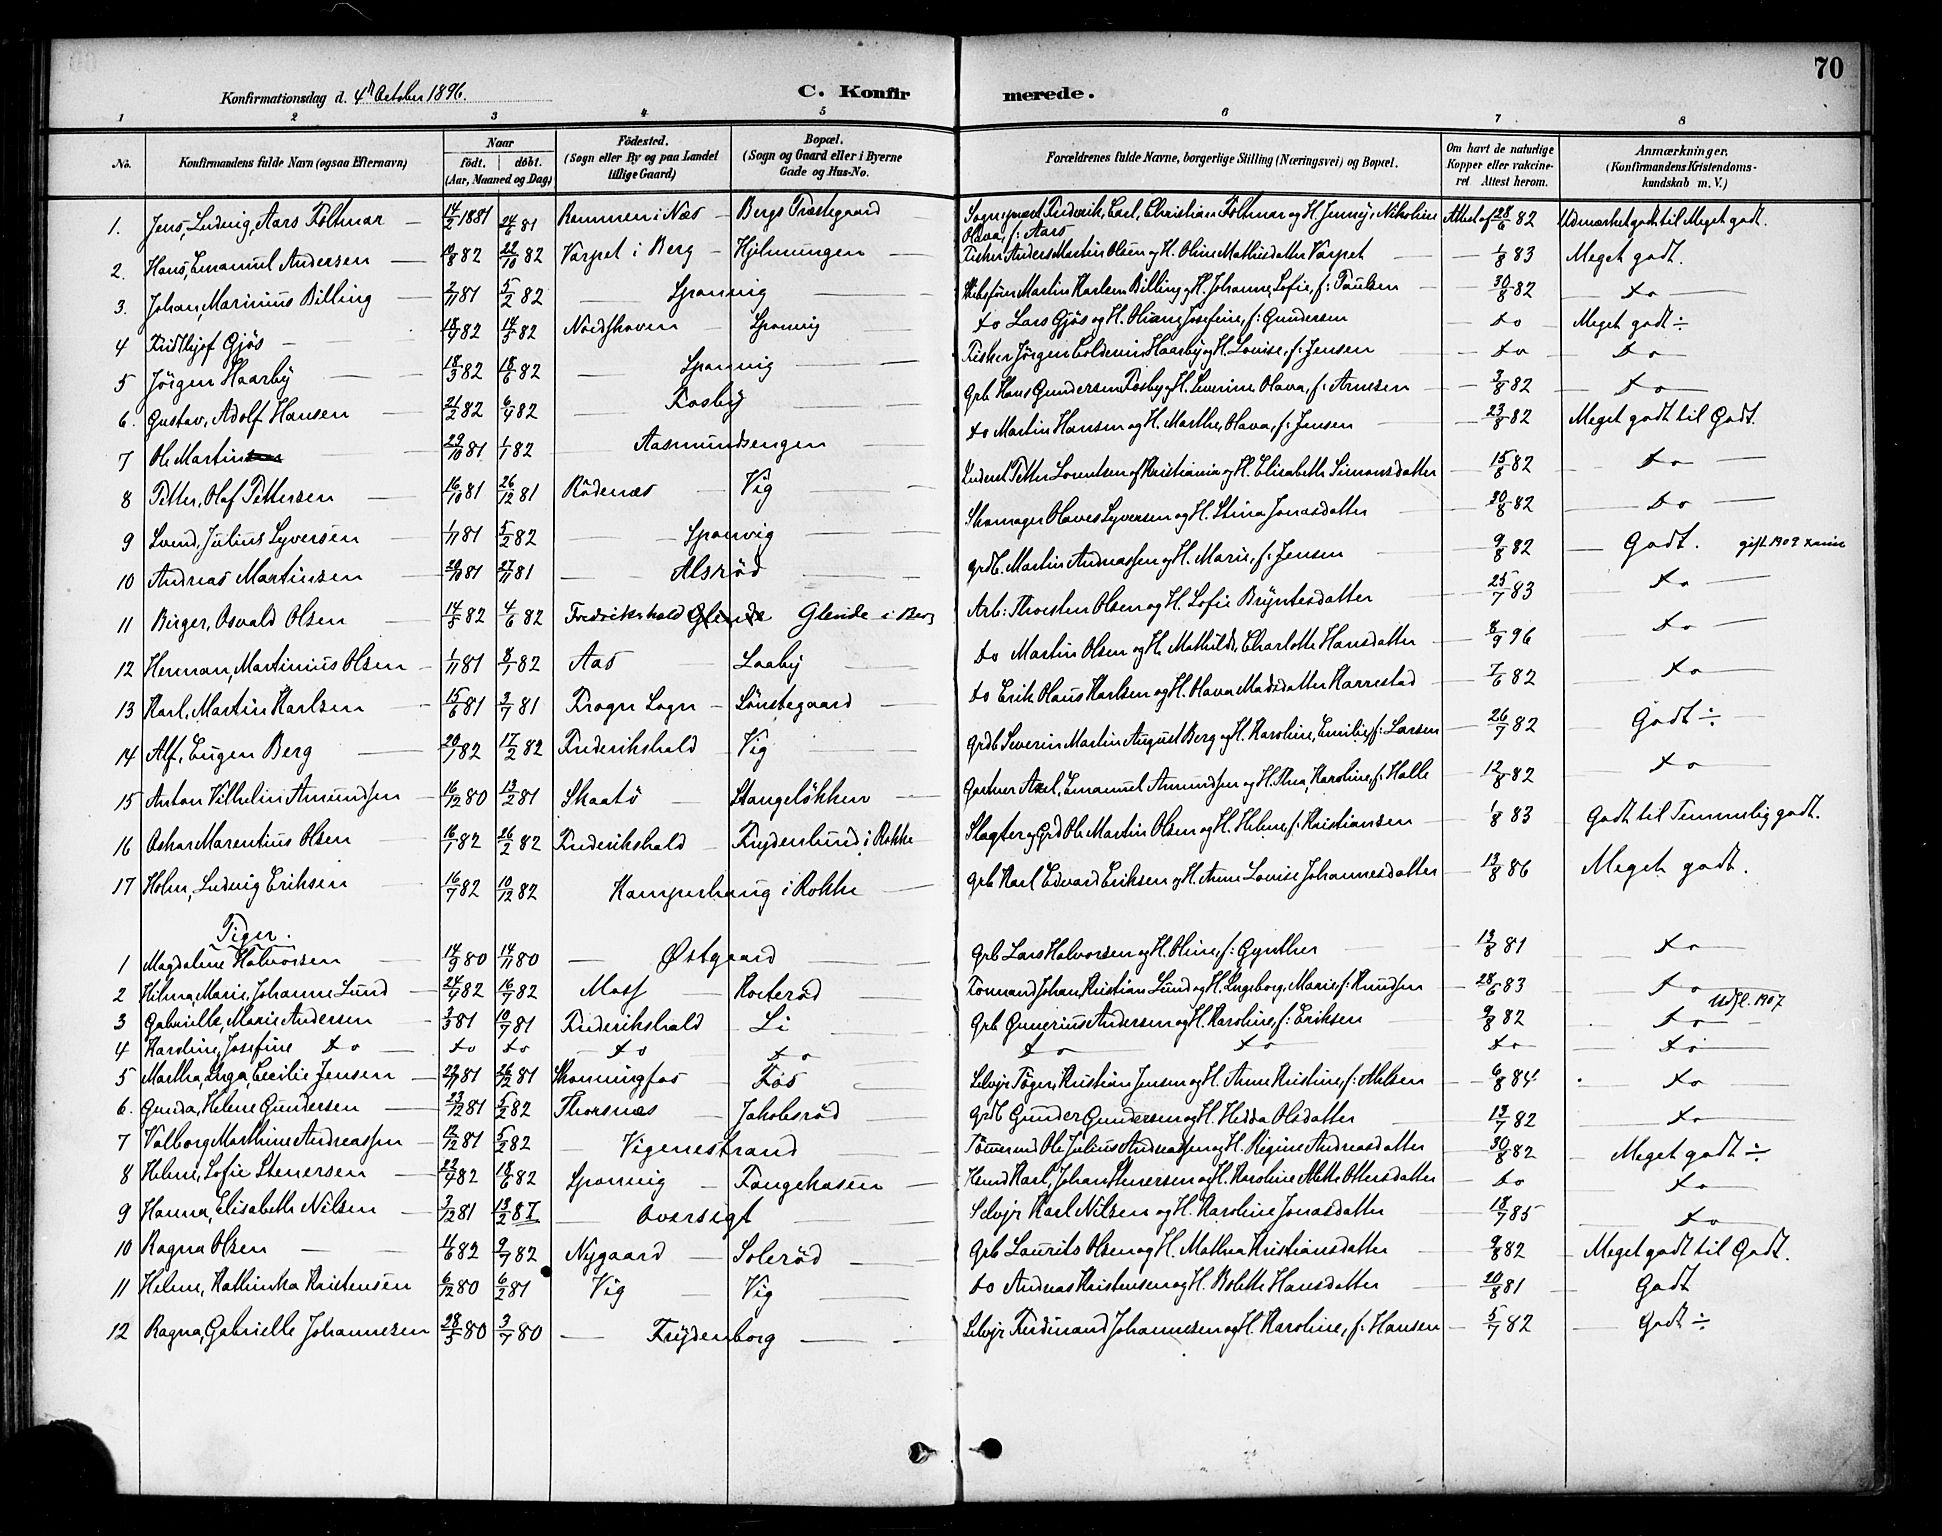 70
Konfirmationsdag d. 4de October 1896.
C. Konfirmerede.
1 2 3 4 5 6 7 8
No. Konfirmandens fulde Navn (ogsaa Efternavn) Naar födt. döbt. (Aar, Maaned og Dag) Födested. (Sogn eller By og paa Landet tillige Gaard) Bopæl. (Sogn og Gaard eller i Byerne Gade og Hus-No. Forældrenes fulde Navne, borgerlige Stilling (Næringsvei) og Bopæl. Om havt de naturlige Kopper eller vakcineret. Attest herom. Anmærkninger. (Konfirmandens Kristendomskundskab m. V.)
1. Jens, Ludvig, Aars Foltmar 14/2 1881 24/6 81 Remmen i Næs Bergs Præstegaard Sognepræst Frederik, Carl, Christian Foltmar og H. Jenny, Nikoline Olava, f: Aars Attest af 28/6 82 Udmærket godt til Meget godt.
2. Hans, Emanuel Andersen 10/8 82 22/10 82 Varpet i Berg Hjelmungen Fisker Anders Martin Olsen og H. Oline Mathisdatter Varpet 1/8 83 Meget godt.
3. Johan, Marinius Billing 2/11 81 5/2 82 Sponvig Martin Karlsen Billing og H. Johanne, Sofie, f: Paulsen 30/8 82 do
4 Fridthjof Gjøs 18/4 82 14/5 82 Sponvig do Lars Gjøs og H. Oliane, Josefine, f: Gundersen do Meget godt ÷
5 Jörgen Haarby 18/3 82 18/6 82 Sponvig Fisker Jörgen Haarby og H. Louise, f: Jensen do do
6. Gustav, Adolf Hansen 21/2 82 6/4 82 Fosby Grb. Hans Gundersen Fosby og H. Severine Olava, f: Arnesen 2/8 82 do
7 Ole Martin 29/10 81 1/1 82 Aasmundsengen do Martin Hansen og H. Marthe, Olava, f: Jensen 23/8 82 Meget godt til Godt.
8 Petter, Olaf Pettersen 16/10 81 26/12 81 Rödenæs Vig Petter Lorentsen af Kristiania og H. Elisabeth Simonsdatter 15/8 82 do
9 Svend, Julius Syversen 1/11 81 5/2 82 Sponvig Skomager Olaves Syversen og H. Stina Jonasdatter 30/8 82 do
10 Andreas Martinsen 20/10 81 27/11 81 Alsröd Grdb. Martin Andreassen og H. Marie, f: Jensen 9/8 82 Godt. gift 1909
11 Birger, Osvald Olsen 14/3 82 4/6 82 Fredrikshald Glende Glende i Berg Arb: Thorsten Olsen og H. Sofie Bryntesdatter 25/7 83 do
12 Herman, Martinius Olsen 1/11 81 8/1 82 Aas Laaby do Martin Olsen og H. Mathilde, Charlotte Hansdatter 8/9 96 do
13 Karl, Martin Karlsen 15/6 81 3/7 81 Frogn Sogn Lönstegaard do Erik Olaus Karlsen og H. Olava Madsdatter Harrestad 7/6 82 do
14 Alf, Eugen Berg 20/1 82 17/2 82 Frederikshald Vig Grdb Severin Martin August Berg og H. Karoline, Emilie, f: Larsen 26/7 82 Godt ÷
15 Anton Vilhelm Amundsen 16/12 80 13/2 81 Skaatö Stangelökken Gartner Axel, Emanuel Amundsen og H. Thea, Karoline, f: Halle 12/8 82 do
16 Oskar Marentius Olsen 16/1 82 26/2 82 Frederikshald Frydenlund i Rokke Slagter og Grd Ole Martin Olsen og H. Helene, f: Kristiansen 1/8 83 Godt til Temmelig godt.
17 Holm, Ludvig Eriksen 16/7 82 10/12 82 Kamperhaug i Rokke Grb Karl Edvard Eriksen og H. Anne Lovise Johannesdatter 13/8 86 Meget godt.
Piger.
1 Magdaline Halvorsen 14/9 80 14/11 80 Østgaard Grb Lars Halvorsen og H. Oline, f: Gynther 13/8 81 do
2 Hilma, Marie, Johanne Lund 24/4 82 16/7 82 Moss Rorteröd Tømmand Johan Kristian Lund og H. Ingeborg, Marie, f: Knudsen 28/6 83 do
3 Gabrielle, Marie Andersen 3/3 81 10/7 81 Frederikshald Li Grb Gunerius Andersen og H. Karoline, f: Eriksen 9/8 82 do Udfl. 1907
4 Karoline, Josefine do do do do do do do do do
5 Martha, Inga, Cecilie Jensen 22/11 81 26/12 81 Skonningfos Fos Selvjr Töger, Kristian Jensen og H. Anne Kristine, f: Nielsen 6/8 84 do
6. Gunda, Helene Gundersen 23/12 81 5/2 82 Thorsnæs Jakobsröd Grdb Gunder Gundersen og H. Hedda Olsdatter 13/7 82 do
7 Valborg Marthine Andreassen 12/12 81 5/2 82 Vigenestrand Tømmermd Ole Julius Andreassen og H. Regine Andreasdatter 30/8 82 Meget godt ÷
8 Helene, Sofie Stenersen 22/4 82 18/6 82 Sponvig Tangekasen Karl, Johan Stenersen og H. Karoline Mette Ottersdatter do do
9 Hanna, Elisabeth Nilsen 3/12 81 13/2 87 Oversigt Selvjr Karl Nilsen og H. Karoline Jonasdatter 18/7 85 do
10 Ragna Olsen 11/6 82 9/7 82 Nygaard Soleröd Grb Laurits Olsen og H. Mathea Kristiansdatter 9/8 82 Meget godt til Godt.
11 Helene, Kathinka Kristensen 6/12 80 6/2 81 Vig Vig do Andreas Kristensen og H. Bolette Hansdatter 20/8 81 Godt
12 Ragna, Gabrielle Johannesen 28/5 80 3/7 80 Frydenborg Selvjr Ferdinand Johannesen og H. Karoline, f: Hansen 5/7 82 Godt ÷